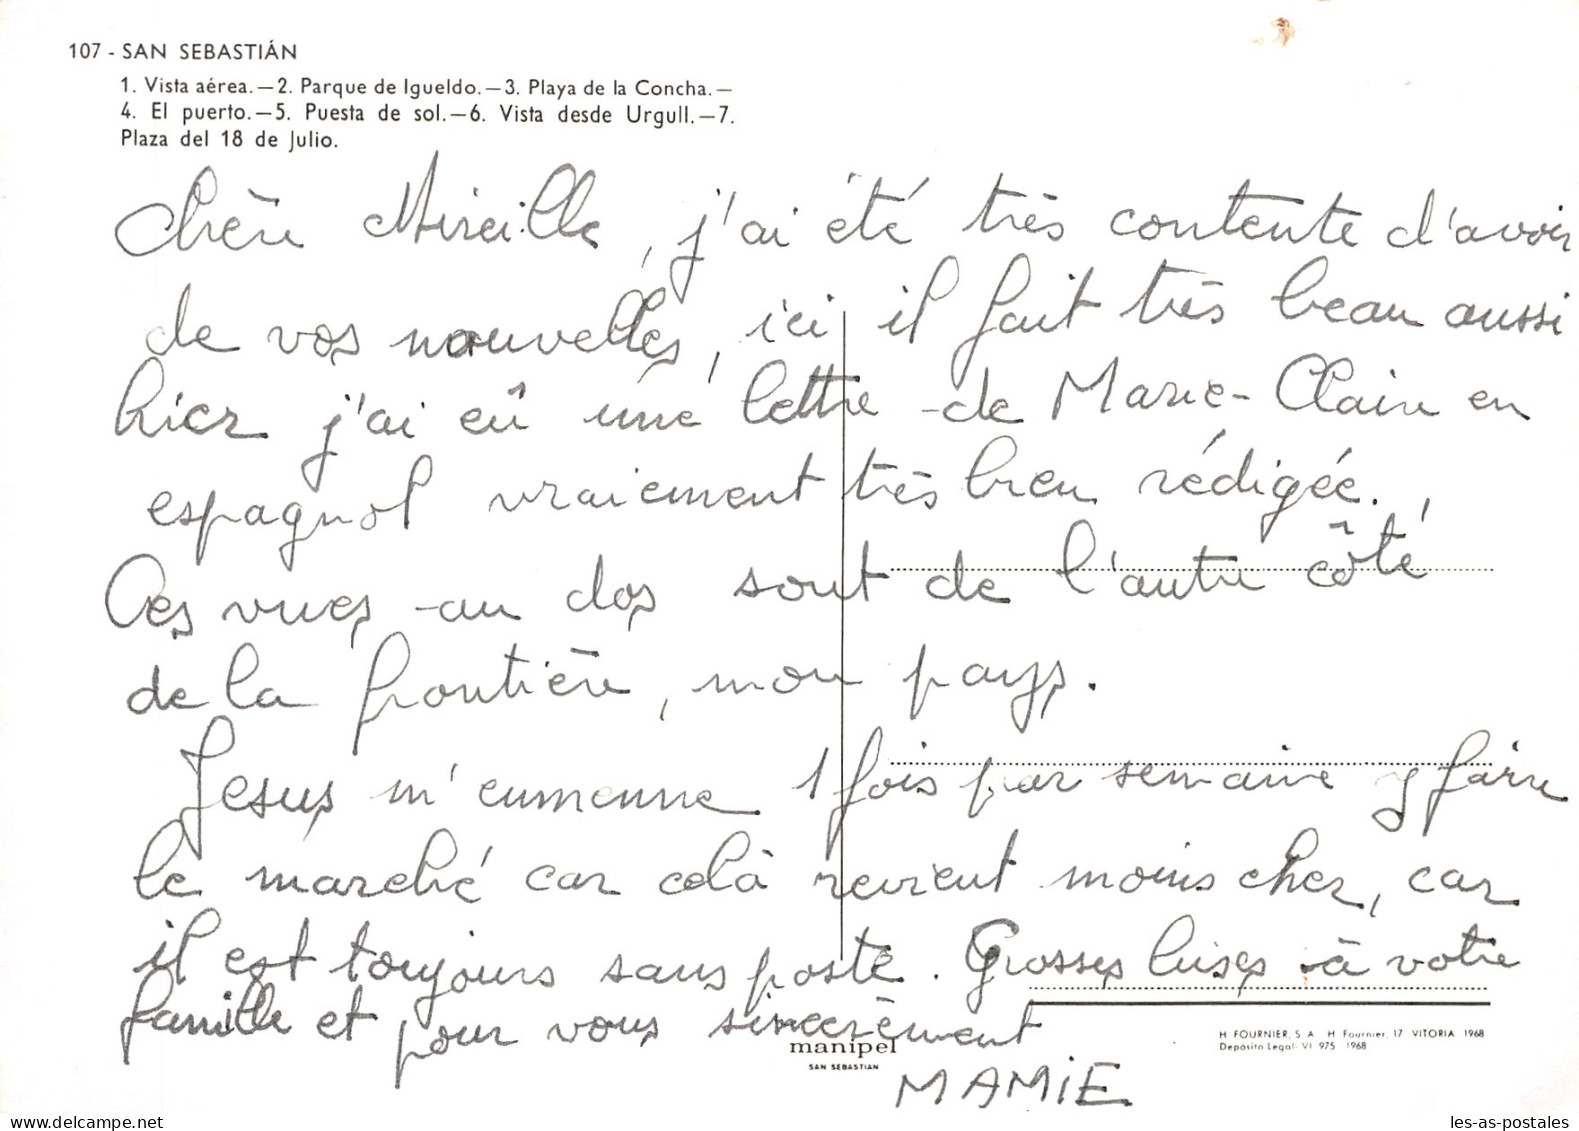 107 - SAN SEBASTIÁN
1. Vista aérea.—2. Parque de Igueldo.—3. Playa de la Concha.—
4. El puerto.—5. Puesta de sol.—6. Vista desde Urgull.—7.
Plaza del 18 de Julio.
Chère Mireille, j'ai été très contente d'avoir
de vos nouvelles, ici il fait très beau aussi
hier j'ai eû une lettre de Marie-Claire en
espagnol vraiement très bien rédigée.
Ces vues au dos sont de l'autre côté
de la frontière, mon pays.
Jesus m'emmenne 1 fois par semaine y faire
le marché car celà revient moins cher, car
il est toujours sans poste. Grosses bises à votre
famille et pour vous sincèrement
MAMiE
manipel
SAN SEBASTIAN
H FOURNIER, S. A. H Fournier, 17 VITORIA 1968
Depósito Legal: VI 975 1968
les-as-postales